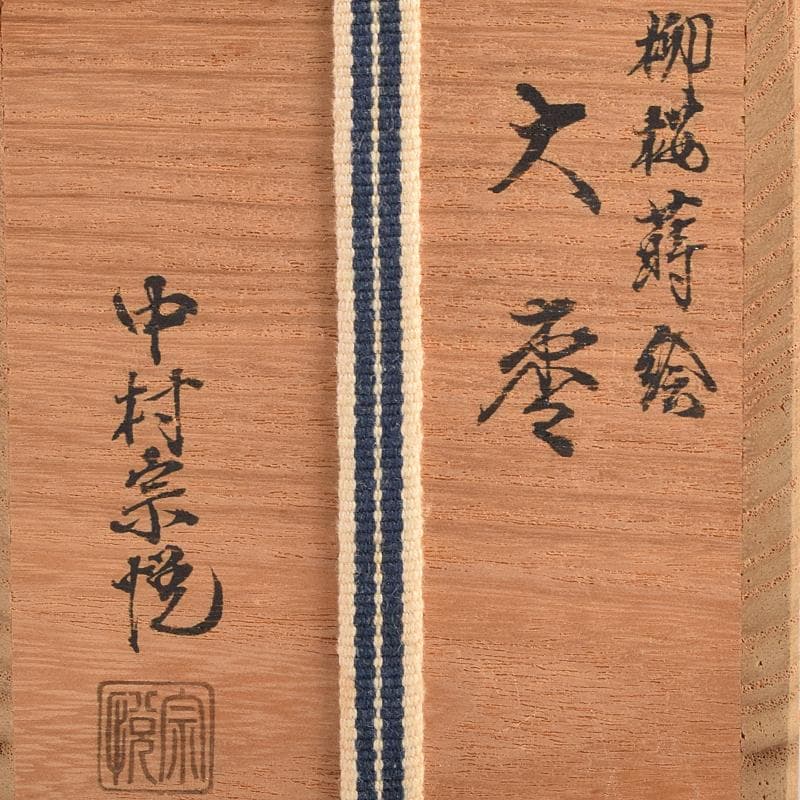 柳桜蒔絵
大棗
中村宗悦
宗悦